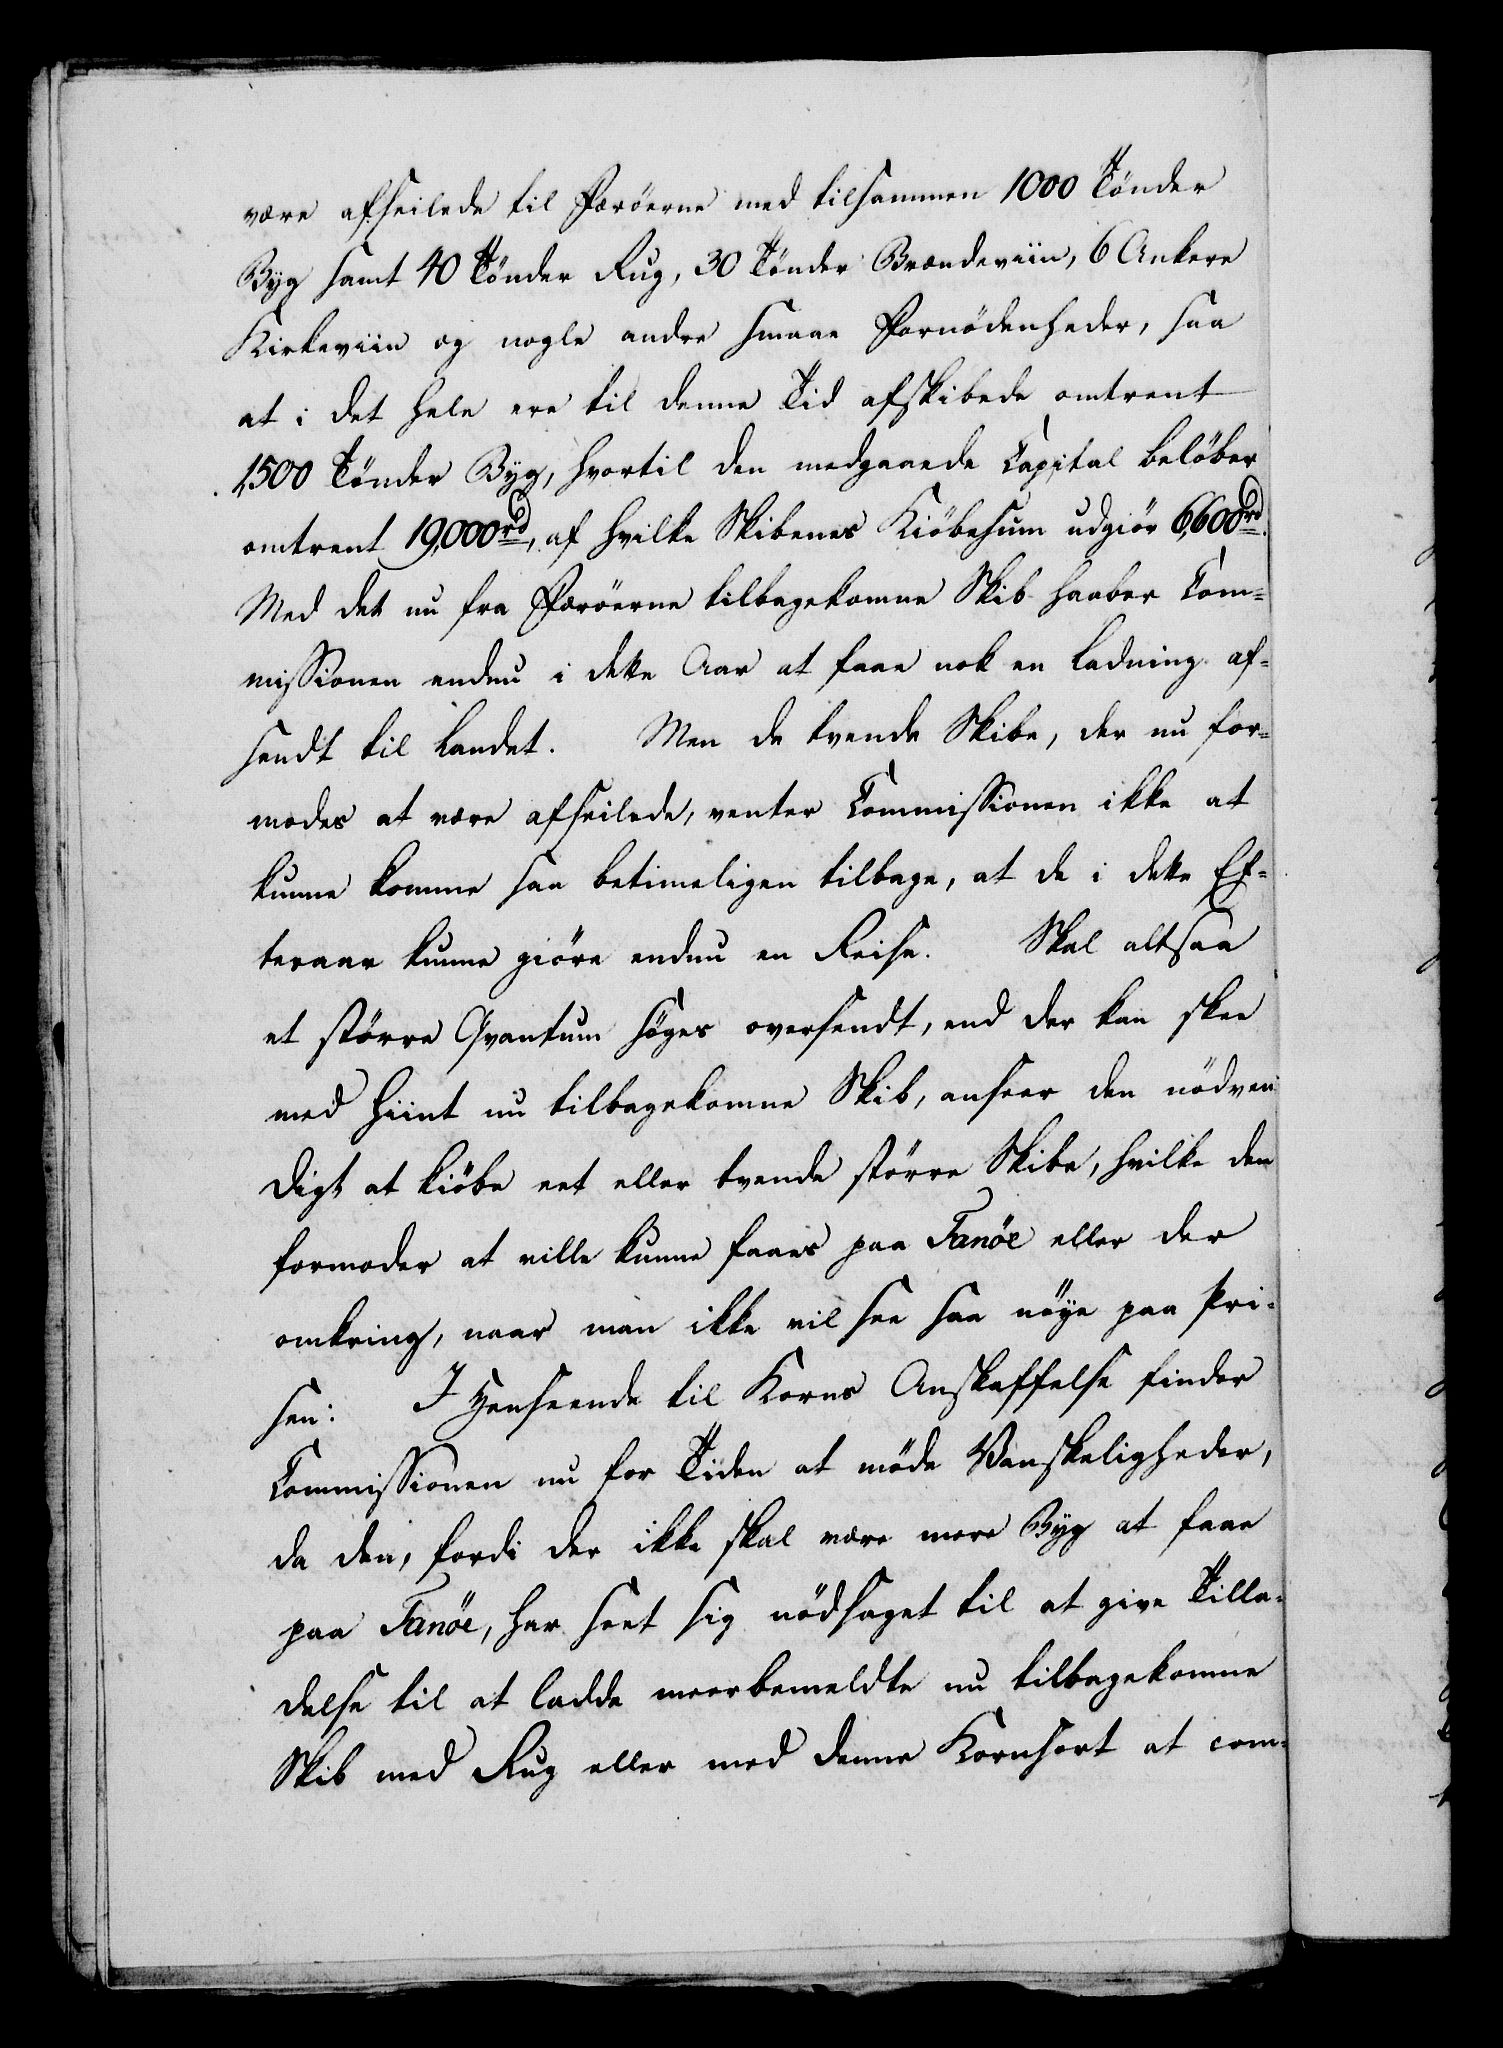 være afseilede til Færöerne med tilsammen 1000 Tönder
Byg samt 40 Tönder Rug, 30 Tönder Brændeviin, 6 Ankere
Kirkeviin og nogle andre smaae Fornödenheder, saa
at i det hele ere til denne Tid afskibede omtrent
1,500 Tönder Byg, hvortil den medgaaede Capital belöber
omtrent 19,000 rd, af hvilke Skibenes Kiöbesum udgiör 6,600 rd.
Med det nu fra Færöerne tilbagekomne Skib haaber Com-
missionen endnu i dette Aar at faae nok en Ladning af-
sendt til Landet. Men de tvende Skibe, der nu for-
modes at være afseilede, venter Commissionen ikke at
kunne komme saa betimeligen tilbage, at de i dette Ef-
teraar kunne giöre endnu en Reise. Skal altsaa
et större Qvantum söges oversendt, end der kan skee
med hiint nu tilbagekomne Skib, anseer den nödven
digt at kiöbe eet eller tvende större Skibe, hvilke den
formoder at ville kunne faaes paa Fanöe eller der
omkring, naar man ikke vil see saa nöye paa Pri-
sen: I Henseende til Korns Anskaffelse finder
Commissionen nu for Tiden at möde Vanskeligheder,
da den, fordi der ikke skal være mere Byg at faae
paa Fanöe, har seet sig nödsaget til at give Tilla-
delse til at ladde meerbemeldte nu tilbagekomne
Skib med Rug eller med denne Kornsort at com-